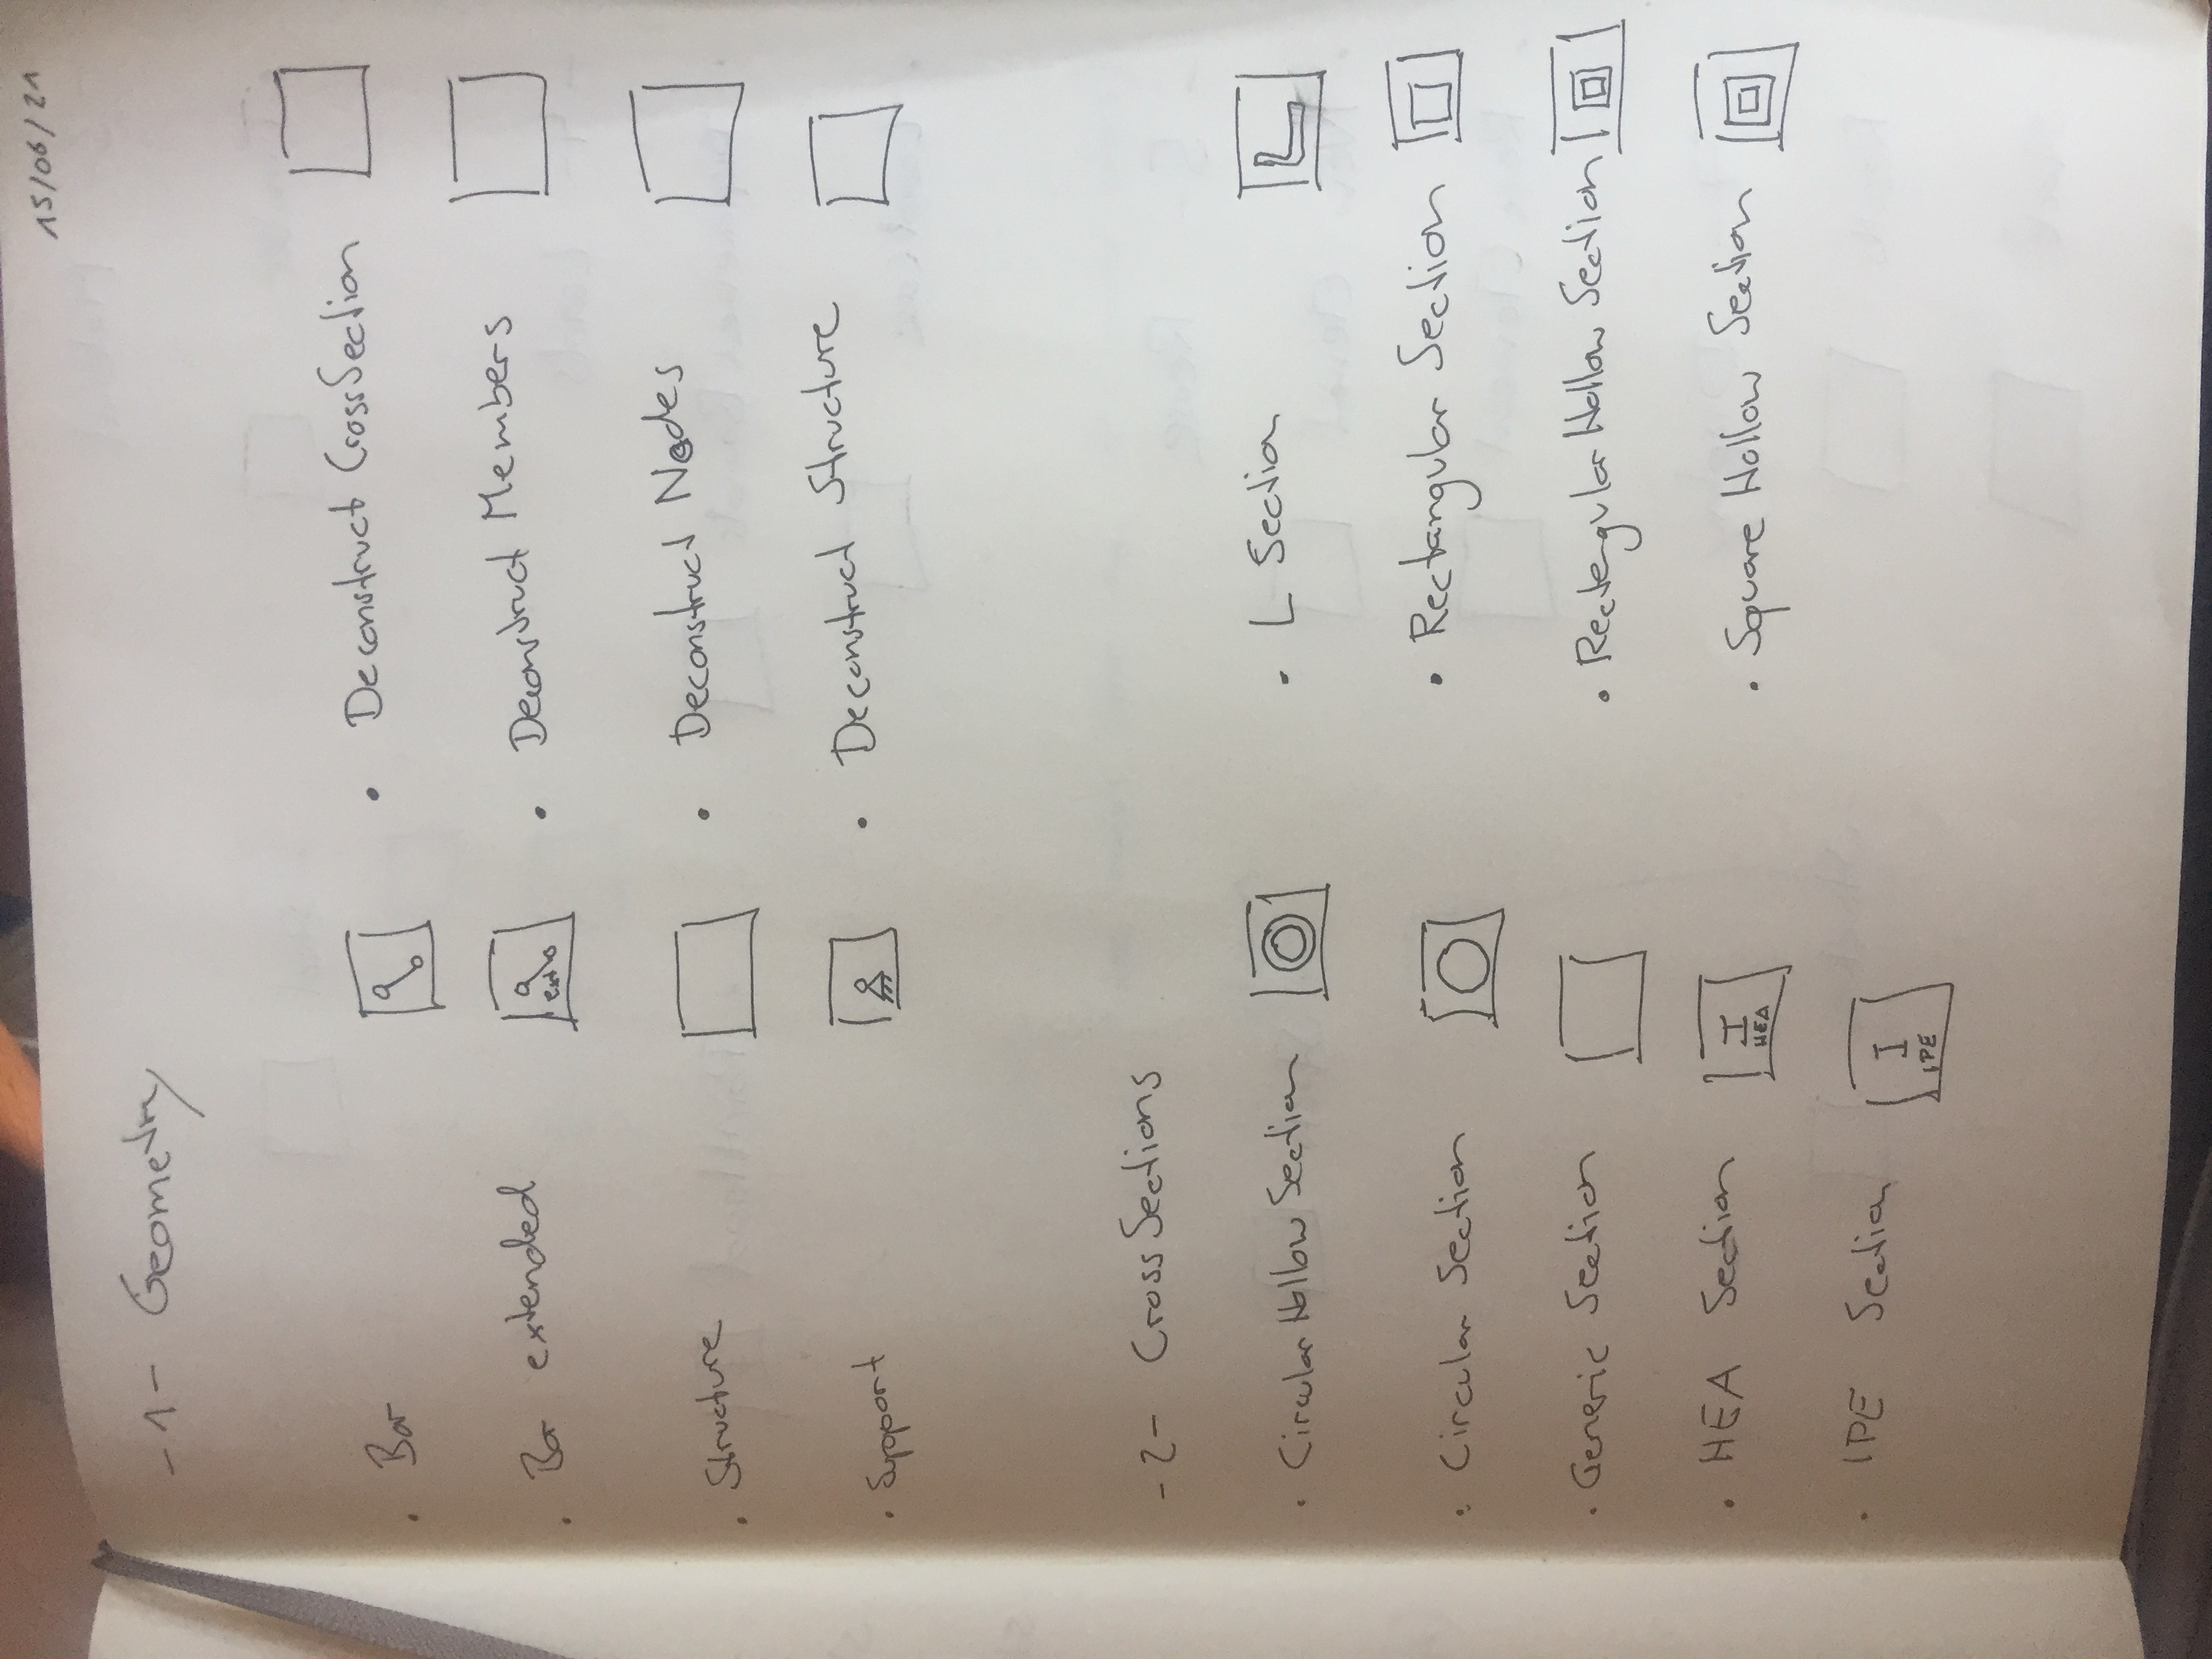 15/06/21
-1- Geometry
. Bar
. Bar extended
ext
. Structure
. Support
. Deconstruct CrossSection
. Deconstruct Members
. Deconstruct Nodes
. Deconstruct Structure
-2- CrossSections
. Circular Hollow Section
. Circular Section
. Generic Section
. HEA Section
I
HEA
. IPE Section
I
IPE
. L Section
. Rectangular Section
. Rectengular Hollow Section
. Square Hollow Section